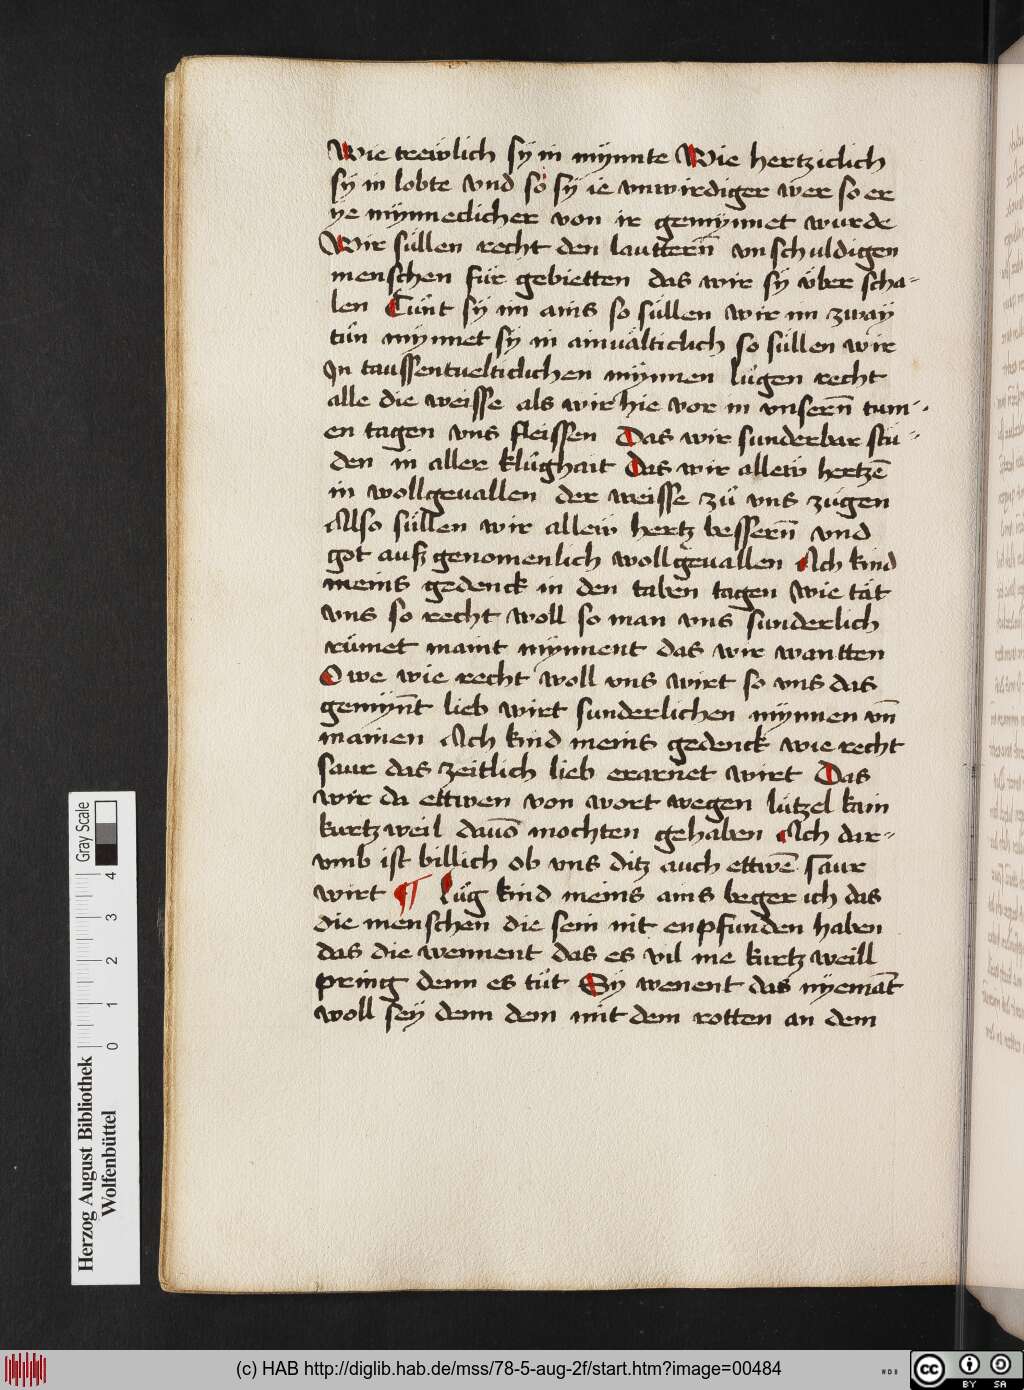 Wie trewlich sy in mynnte Wie hertziclich
sy in lobte vnd so sy ie vnwirdiger wer so er
ye mynneclicher von ir gemynnet wurde
Wir süllen recht den lauttern̄ vnschuldigen
menschen für gebietten das wir sy über scha-
len Tünt sy im ains so süllen wir im zway
tün mynnet sy in ainuälticlich so süllen wir
In taussentuelticlichen mynnen lůgen recht
alle die weisse als wir hie vor in vnsern̄ tum-
en tagen vns fleissen Das wir sunderbar stu-
den in aller klůghait Das wir allew hertzē
in wollgeuallen der weisse zů vns zugen
Also süllen wir allew hertz bessern̄ vnd
got aufz genomenlich wollgeuallen Ach kind
meins gedenck in den taben tagen Wie tät
vns so recht woll so man vns sunderlich
rümet maint mynnent das wir wantten
Owe wie recht woll vns wirt so vns das
gemyn̄t lieb wirt sunderlichen mynnen vn̄
mainen Ach kind meins gedenck wie recht
saur das zeitlich lieb erarnet wirt Das
wir da ettwen von wort wegen lützel kain
kurtzweil dauō mochten gehaben Ach dar-
vmb ist billich ob vns ditz auch ettwē saur
wirt ¶ Lůg kind meins ains beger ich das
die menschen die sein nit enpfunden haben
das die wennent das es vil me kurtzweill
pring denn es tüt Sy wenent das nyemāt
woll sey denn dem mit dem rotten an dem
Gray Scale
0 1 2 3 4
Herzog August Bibliothek
Wolfenbüttel
(c) HAB http://diglib.hab.de/mss/78-5-aug-2f/start.htm?image=00484
WDB
cc
BY SA